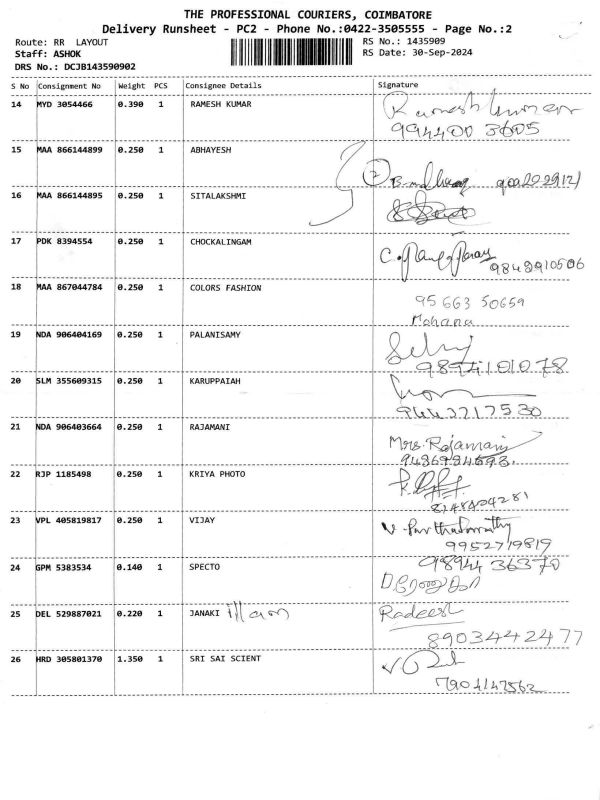 THE PROFESSIONAL COURIERS, COIMBATORE
Delivery Runsheet - PC2 - Phone No.:0422-3505555 - Page No.:2
Route: RR LAYOUT RS No.: 1435909
Staff: ASHOK RS Date: 30-Sep-2024
DRS No.: DCJB143590902
S No Consignment No Weight PCS Consignee Details Signature
14 MYD 3054466 0.390 1 RAMESH KUMAR Ramesh Kumar
994400 3605
15 MAA 866144899 0.250 1 ABHAYESH
2
16 MAA 866144895 0.250 1 SITALAKSHMI
17 PDK 8394554 0.250 1 CHOCKALINGAM
9842910506
18 MAA 867044784 0.250 1 COLORS FASHION 95 663 50659
Mohana
19 NDA 906404169 0.250 1 PALANISAMY Selvi
9894101078
20 SLM 355609315 0.250 1 KARUPPAIAH
9443717530
21 NDA 906403664 0.250 1 RAJAMANI Mrs. Rajamani
22 RJP 1185498 0.250 1 KRIYA PHOTO
8248404281
23 VPL 405819817 0.250 1 VIJAY V. Parthasarathy
9952719819
24 GPM 5383534 0.140 1 SPECTO 98944 36370
25 DEL 529887021 0.220 1 JANAKI illam Radeesh
8903442477
26 HRD 305801370 1.350 1 SRI SAI SCIENT
7904147562